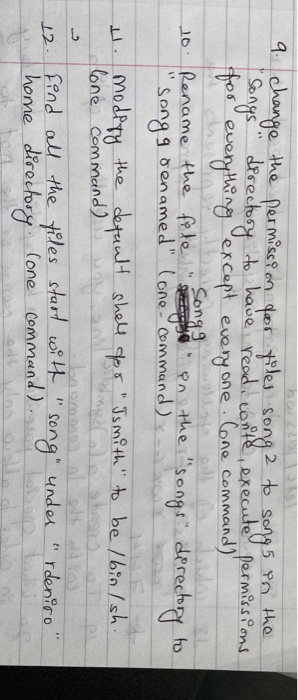 9. change the permission for files song 2 to song 5 in the
"songs" directory to have read, write, execute permissions
for everything except everyone. (one command)
10. Rename the file "song9" in the "songs" directory to
"song 9 renamed" (one-command)
11. modify the default shell for "Jsmith" to be /bin/sh.
(one command)
12. find all the files start with "song" under "rdeniro"
home directory. (one command).